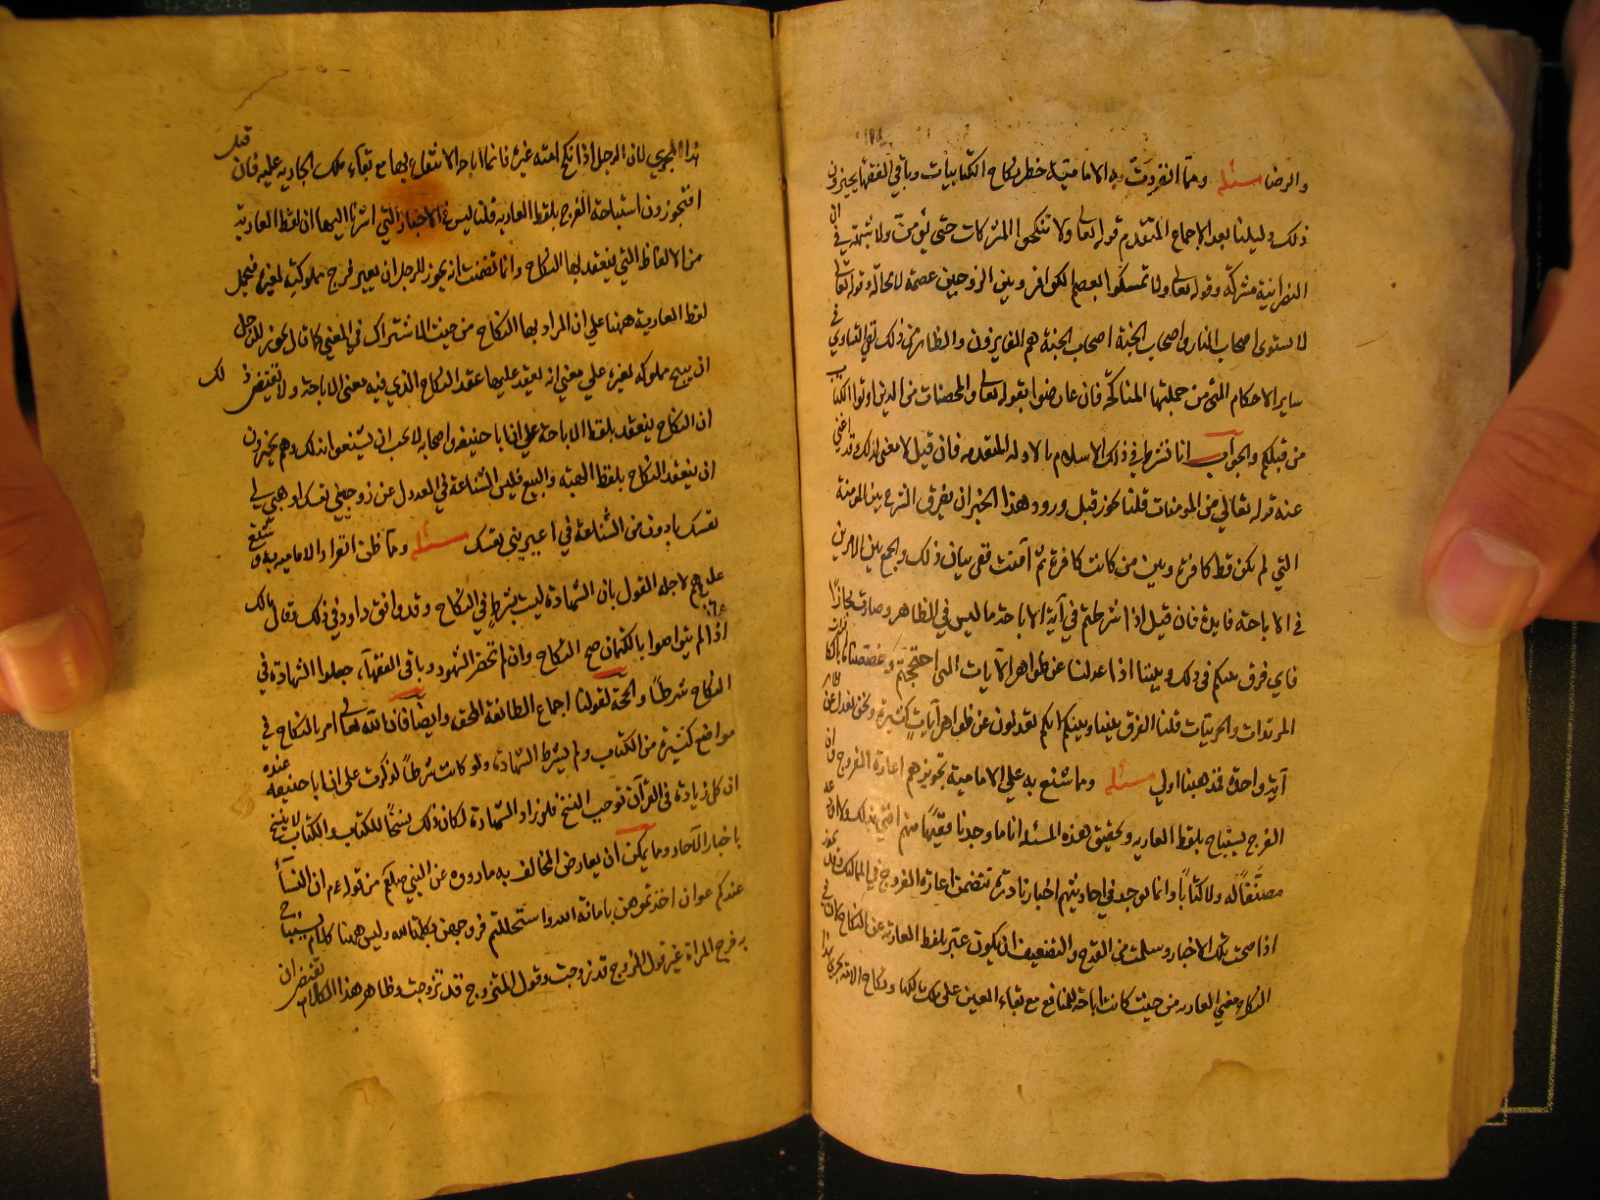 والرضا مسئله ومما انفردت به الامامية حظر نكاح الكتابيات وباقي الفقهاء يجيزون
ذلك دليلنا بعد الاجماع المتقدم قوله تعالى ولا تنكحوا المشركات حتى يؤمنّ ولا شبهة في ان
النصرانية مشركة وقوله تعالى ولا تمسكوا بعصم الكوافر وبين الزوجين عصمة لا محالة وقوله تعالى
لا يستوى اصحاب النار واصحاب الجنة اصحاب الجنة هم الفايزون والظاهر من ذلك نفي التساوي في
ساير الاحكام التي من جملتها المناكحة فان عارضوا بقوله تعالى والمحصنات من الذين اوتوا الكتاب
من قبلكم والجواب انا نشرط في ذلك الاسلام بالادلة المتقدمه فان قيل لا معنى لذلك وقد اغنى
عنه قوله تعالي من المومنات قلنا يجوز قبل ورود هذا الخبر ان يفرق الشرع بين المومنة
التي لم تكن قط كافرة وبين من كانت كافرة ثم آمنت ففي بيان ذلك والجمع بين الامرين
في الاباحة فايدة فان قيل اذا شرطتم في آية الاباحة ما ليس في الظاهر وصارت مجازًا
فاي فرق بينكم في ذلك وبيننا اذا عدلنا عن ظواهر الآيات التي احتججتم وخصصناها بالكافرات
المرتدات والحربيات قلنا الفرق بيننا وبينكم انكم تعدلون عن ظواهر آيات كثيرة ونحن نعدل عن ظاهر
آية واحدة فمذهبنا اولى مسئله ومما شنع به علي الامامية تجويزهم اعارة الفروج وان
الفرج يستباح بلفظ العاريه وتحقيق هذه المسئله انا ما وجدنا فقيهًا منهم افتى بذلك ولا اودعه
مصنَّفًا له ولا كتابًا وانما يوجد في احاديثهم اخبار نادرة تتضمن اعارة الفروج في المماليك وقد يجوز
اذا صحت تلك الاخبار وسلمت من القدح والتضعيف ان يكون عبّر بلفظ العارية عن النكاح لان في
النكاح معني العاريه من حيث كانت اباحة للمنافع مع بقاء العين على ملك مالكها ونكاح الامة يجري هذا
هذا المجري لان الرجل اذا نكح امته غيره فانما اباحه الانتفاع بها مع بقاء ملك الجارية عليه فان قيل
افتجوزون استباحة الفرج بلفظ العاريه قلنا ليس في الاخبار التي اشرنا اليها ان لفظ العارية
من الالفاظ التي ينعقد بها النكاح وانما تضمنت انه يجوز للرجل ان يعير فرج مملوكته لغيره فنحمل
لفظ العارية ههنا علي ان المراد بها النكاح من حيث الاشتراك في المعني كما قال يجوز للرجل
ان يبيح مملوكه لغيره علي معني انه يعقد عليها عقد النكاح الذي فيه معنى الاباحة ولا يقتضي ذلك
ان النكاح ينعقد بلفظ الاباحة علي ان ابا حنيفه واصحابه لا يجب ان يشنعوا بذلك وهم يجيزون
ان ينعقد النكاح بلفظ الهبه والبيع فليس الشناعة في العدول عن زوجيني نفسك او هبي لي
نفسك بادون من الشناعة في اعيريني نفسك مسئله ومما ظن انفراد الاماميه به وشنع
عليهم لاجله القول بان الشهادة ليست بشرط في النكاح وقد وافق داود في ذلك وقال مالك
اذا لم يتواصوا بالكتمان صح النكاح وان لم تحضر الشهود وباقي الفقهاء جعلوا الشهادة في
النكاح شرطًا والحجة لقولنا اجماع الطائفة المحقه وايضا فان الله تعالى امر بالنكاح في
مواضع كثيرة من الكتاب ولم يشرط الشهادة ولو كانت شرطاً لذكرت على ان ابا حنيفه عنده
ان كل زيادة في القرآن توجب النسخ فلو زاد الشهادة لكان ذلك نسخًا للكتاب والكتاب لا ينسخ
باخبار الآحاد ومما يمكن ان يعارض المخالف به ما رووه عن النبي صلعم من قوله ع م ان النسآء
عندكم عوان اخذتموهن بامانة الله واستحللتم فروجهن بكلمة الله وليس ههنا كلام يستباح
به فرج المراة غير قول المزوج قد زوجت وقول المتزوج قد تزوجت وظاهر هذا الكلام يقتضى ان